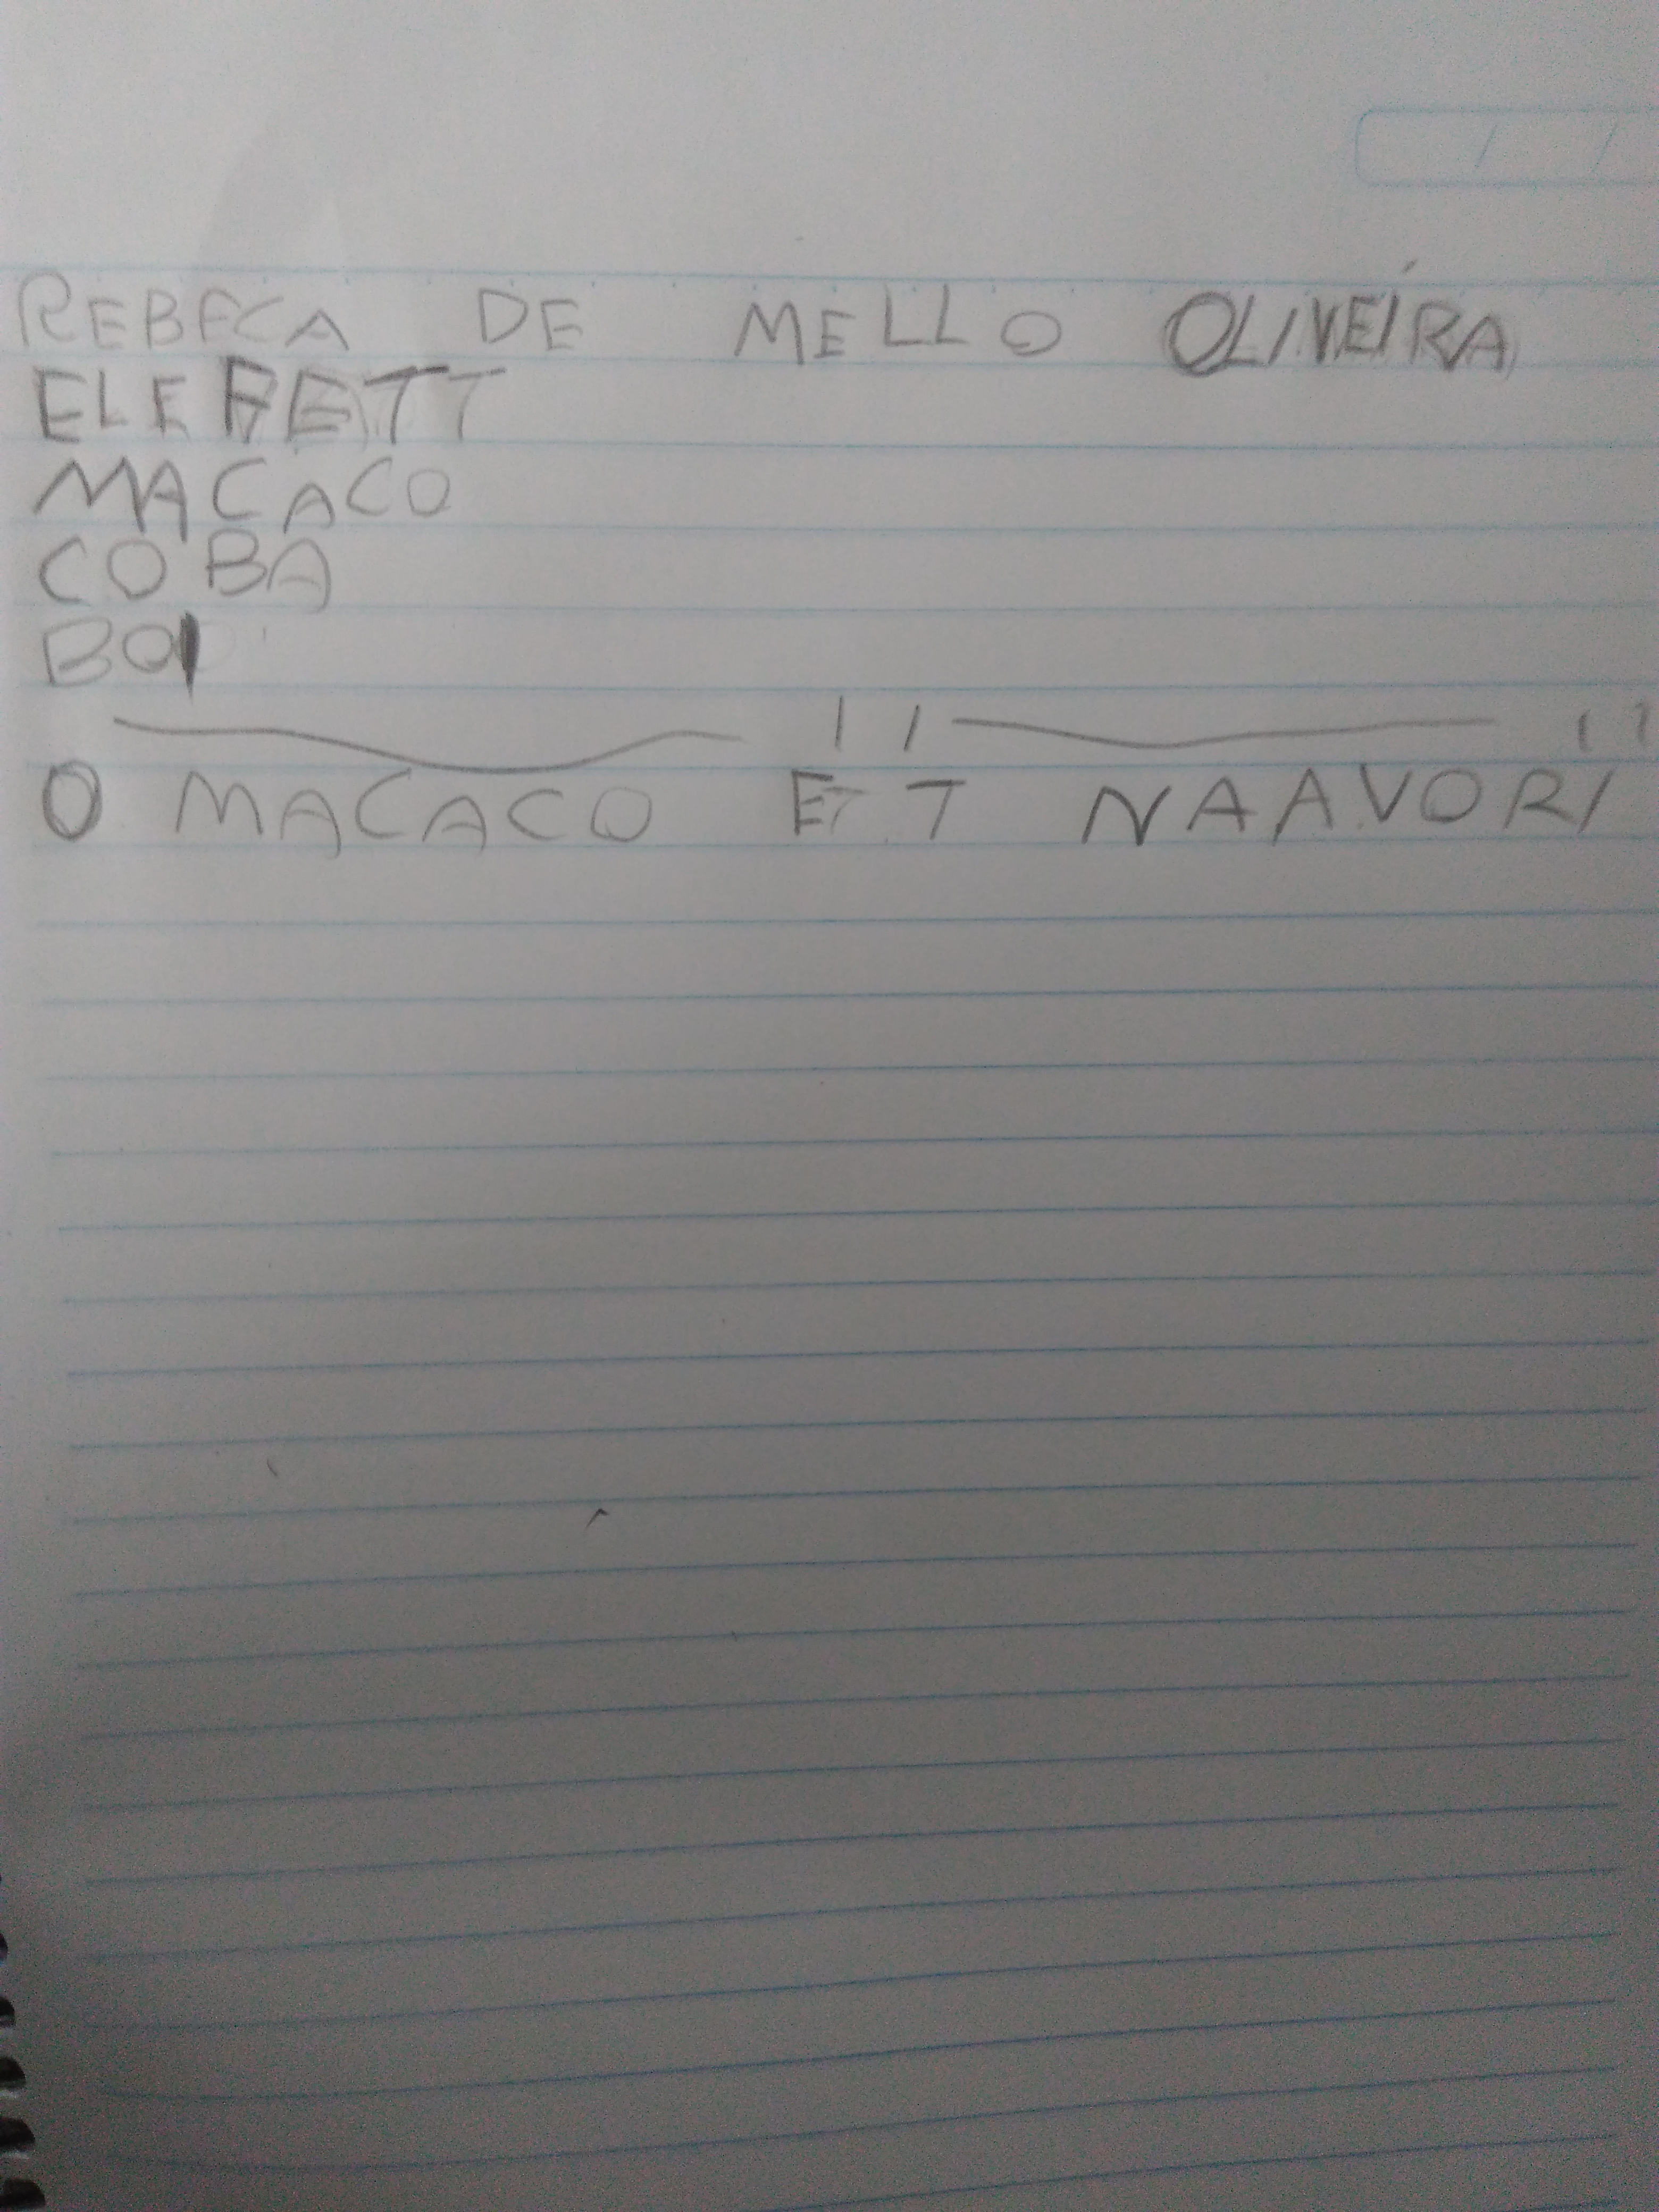 REBECA DE MELLO OLIVEIRA
ELEFETT
MACACO
COBA
BOI
O MACACO ET T NAAVORI